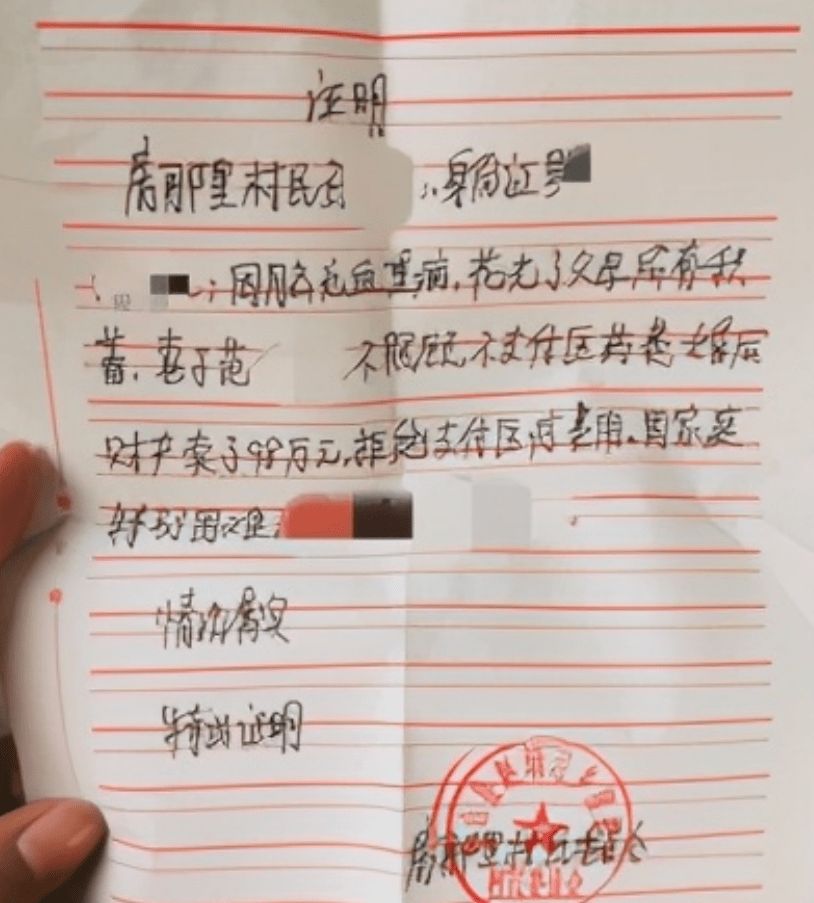 证明
房那里村民 身份证号
因脑出血重病,花光了父母所有积
蓄,妻子范 不照顾不支付医药费婚后
财产卖了98万元,拒绝支付医疗费用。因家庭
特别困难
情况属实
特此证明
房那里村